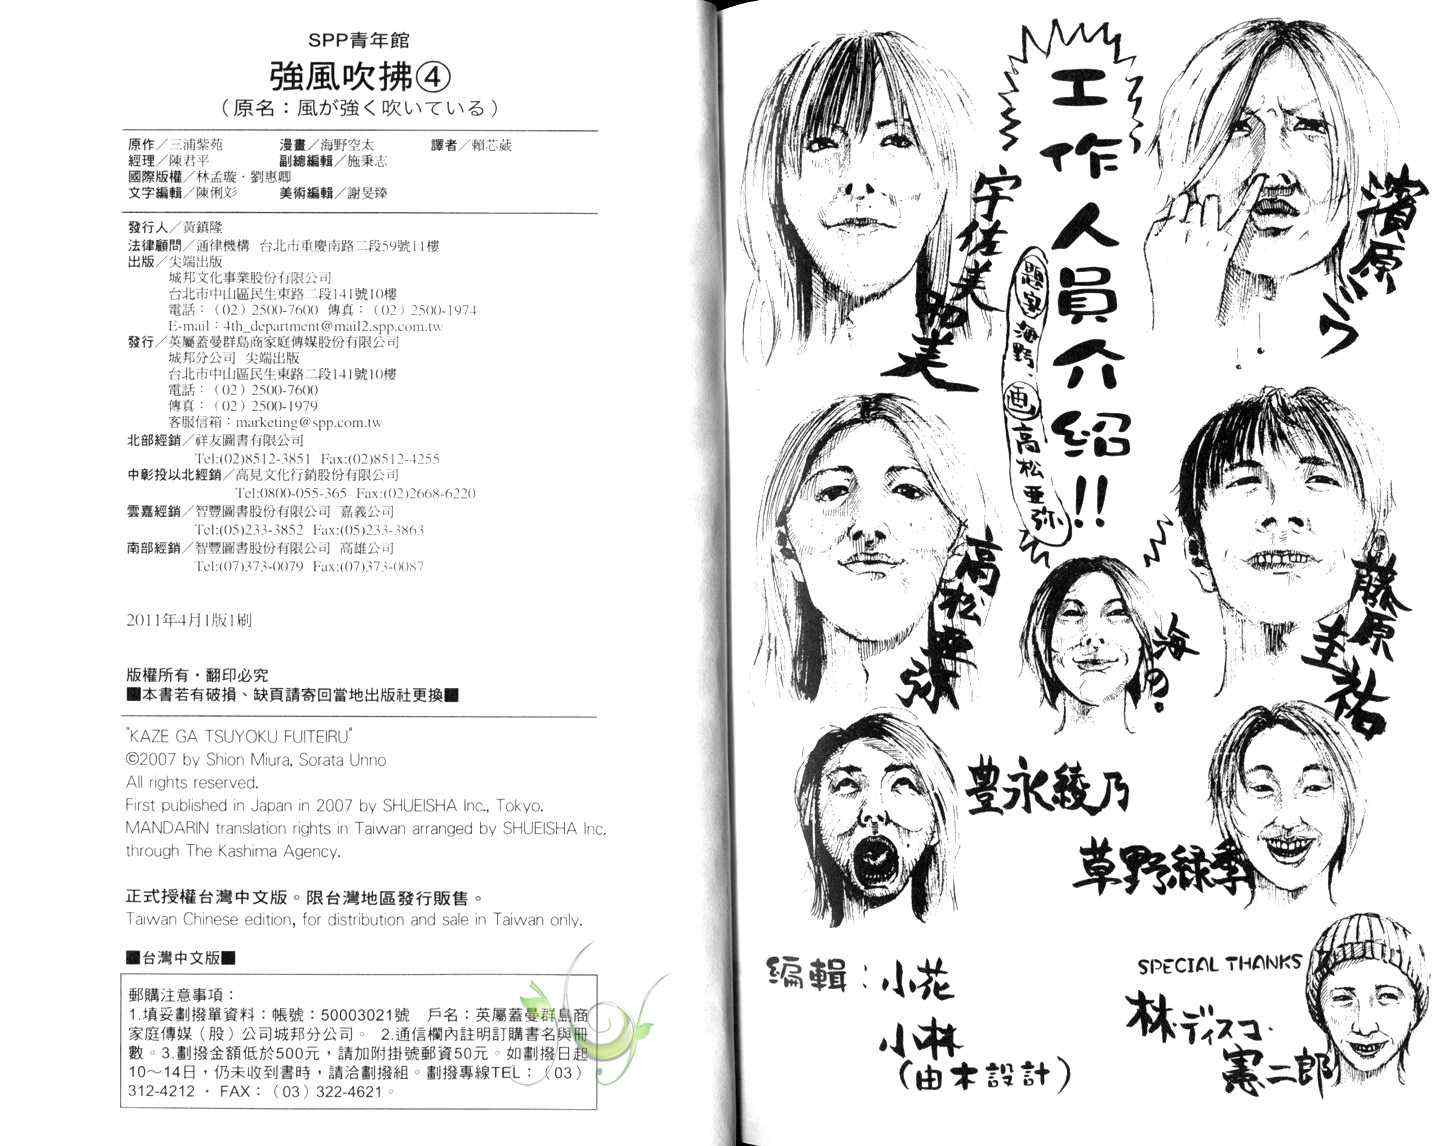 SPP青年館
強風吹拂④
（原名：風が強く吹いている）
原作／三浦紫苑 漫畫／海野空太 譯者／賴芯葳
經理／陳君平 副總編輯／施秉志
國際版權／林孟璇・劉惠卿
文字編輯／陳俐彣 美術編輯／謝旻臻
發行人／黃鎮隆
法律顧問／通律機構 台北市重慶南路二段59號11樓
出版／尖端出版
城邦文化事業股份有限公司
台北市中山區民生東路二段141號10樓
電話：（02）2500-7600 傳真：（02）2500-1974
E-mail：4th_department@mail2.spp.com.tw
發行／英屬蓋曼群島商家庭傳媒股份有限公司
城邦分公司 尖端出版
台北市中山區民生東路二段141號10樓
電話：（02）2500-7600
傳真：（02）2500-1979
客服信箱：marketing@spp.com.tw
北部經銷／祥友圖書有限公司
Tel:(02)8512-3851 Fax:(02)8512-4255
中彰投以北經銷／高見文化行銷股份有限公司
Tel:0800-055-365 Fax:(02)2668-6220
雲嘉經銷／智豐圖書股份有限公司 嘉義公司
Tel:(05)233-3852 Fax:(05)233-3863
南部經銷／智豐圖書股份有限公司 高雄公司
Tel:(07)373-0079 Fax:(07)373-0087
2011年4月1版1刷
版權所有・翻印必究
■本書若有破損、缺頁請寄回當地出版社更換■
"KAZE GA TSUYOKU FUITEIRU"
©2007 by Shion Miura, Sorata Unno
All rights reserved.
First published in Japan in 2007 by SHUEISHA Inc., Tokyo.
MANDARIN translation rights in Taiwan arranged by SHUEISHA Inc.
through The Kashima Agency.
正式授權台灣中文版。限台灣地區發行販售。
Taiwan Chinese edition, for distribution and sale in Taiwan only.
■台灣中文版■
郵購注意事項：
1.填妥劃撥單資料：帳號：50003021號 戶名：英屬蓋曼群島商
家庭傳媒（股）公司城邦分公司。 2.通信欄內註明訂購書名與冊
數。3.劃撥金額低於500元，請加附掛號郵資50元。如劃撥日起
10～14日，仍未收到書時，請洽劃撥組。劃撥專線TEL：（03）
312-4212 ・ FAX：（03）322-4621。
工作人員介紹!!
海野、画 高松亜弥
濱原
宇佐美
藤原圭祐
高松亜弥
海の。
豊永綾乃
草野緑季
編輯：小花
小林
（由木設計）
SPECIAL THANKS
林・ディスコ・
憲二郎